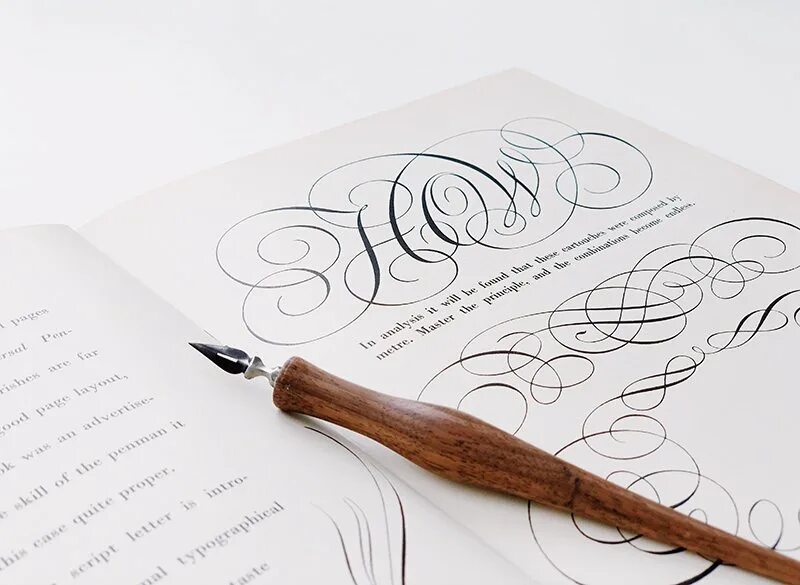 l pages
ersal Pen-
rishes are far
good page layout,
ok was an advertise-
e skill of the penman it
this case quite proper,
script letter is intro-
nal typographical
taste
HOW
In analysis it will be found that these cartouches were composed by
metre. Master the principle, and the combinations become endless.